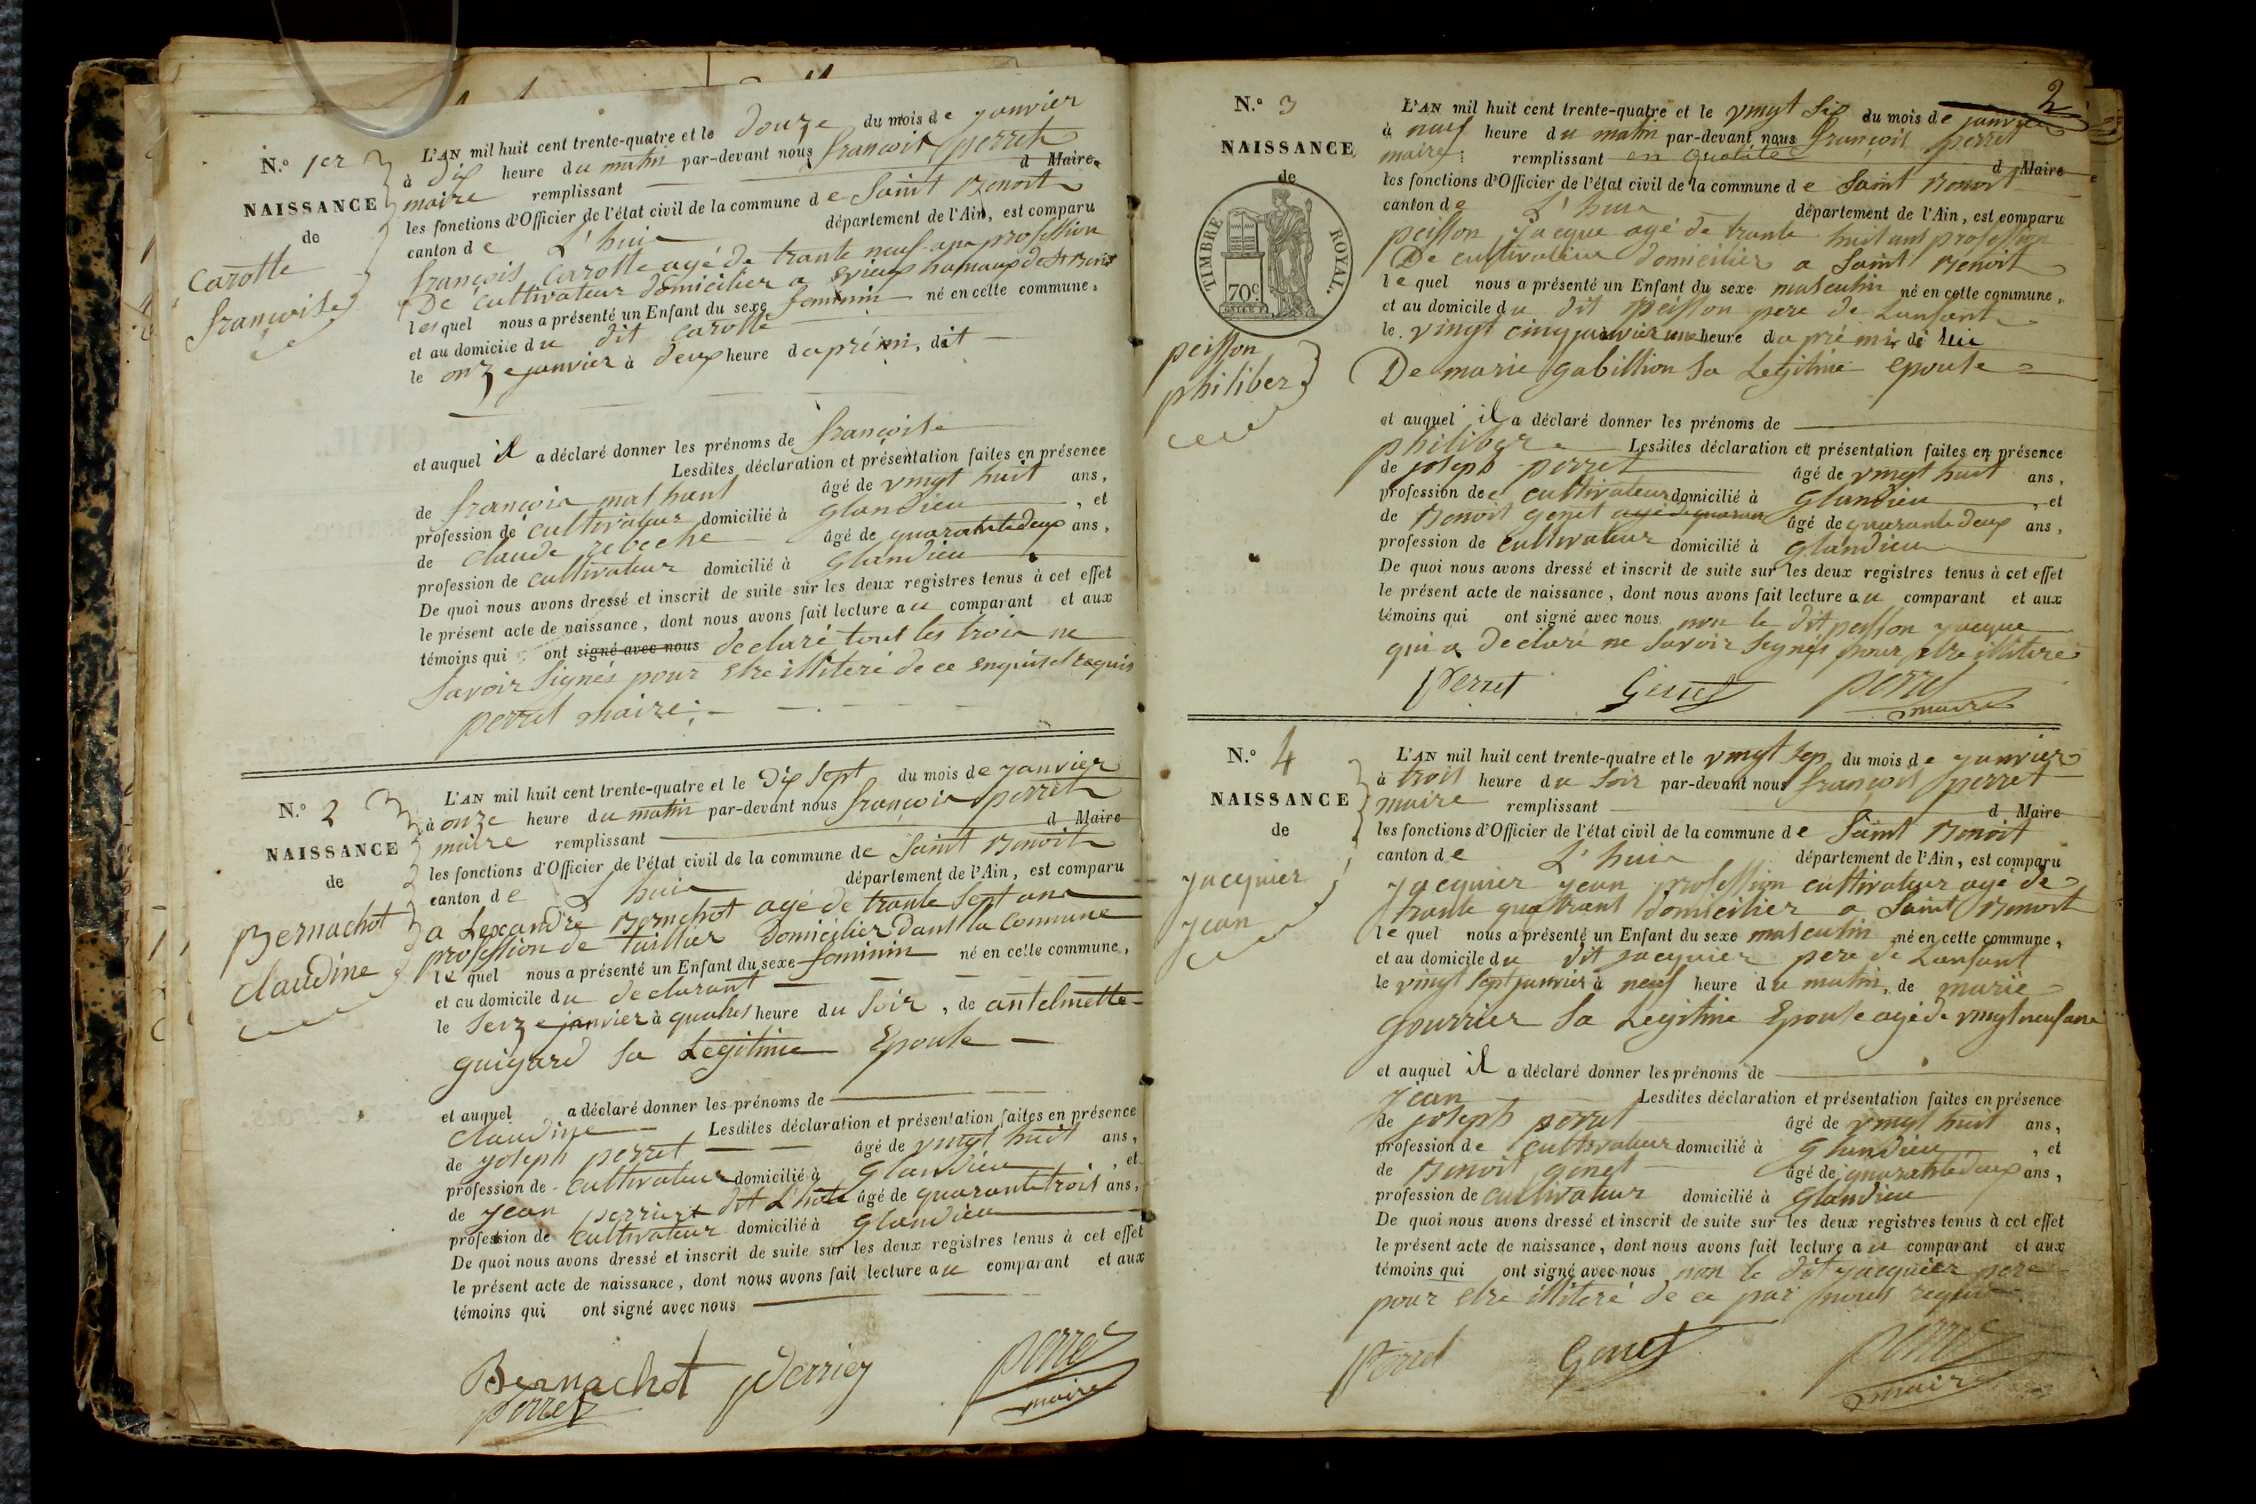 N.° 1er
NAISSANCE
de
Carotte
françoise
L'AN mil huit cent trente-quatre et le douze du mois de janvier
à dix heure du matin par-devant nous françois perret
maire remplissant d Maire
les fonctions d'Officier de l'état civil de la commune de Saint Benoit
canton de L'huis département de l'Ain, est comparu
françois Carotte agé de trante neuf ans profession
De cultivateur domicilier a evieux hamaux de St Benoit
lesquel nous a présenté un Enfant du sexe feminin né en cette commune,
et au domicile du dit carotte
le onze janvier à deux heure daprémi, dit
et auquel il a déclaré donner les prénoms de françoise
Lesdites déclaration et présentation faites en présence
de françois mathant âgé de vingt huit ans,
profession de cultivateur domicilié à glandieu, et
de Claude reveche âgé de quarante deux ans,
profession de cultivateur domicilié à glandieu
De quoi nous avons dressé et inscrit de suite sur les deux registres tenus à cet effet
le présent acte de naissance, dont nous avons fait lecture au comparant et aux
témoins qui ont signé avec nous declaré tout les trois ne
Savoir Signés pour etre illiteré de ce enquis et requis
perret maire
N.° 2
NAISSANCE
de
Bernachot
claudine
L'AN mil huit cent trente-quatre et le Dix Sept du mois de janvier
à onze heure du matin par-devant nous françois perret
maire remplissant d Maire
les fonctions d'Officier de l'état civil de la commune de Saint Benoit
canton de L'huis département de l'Ain, est comparu
a Lexandre Bernchot agé de trante Sept ans
profession de taillier Domicilier Dans la Commune
le quel nous a présenté un Enfant du sexe feminin né en cette commune,
et au domicile du declarant
le Seize janvier à quatres heure du Soir, de antelmette
guigard Sa Legitime Epouse
et auquel a déclaré donner les prénoms de
claudine Lesdites déclaration et présentation faites en présence
de joseph perret âgé de vingt huit ans,
profession de cultivateur domicilié à glandieu, et
de jean perrier dit L'hote âgé de quarante trois ans,
profession de cultivateur domicilié à glandieu
De quoi nous avons dressé et inscrit de suite sur les deux registres tenus à cet effet
le présent acte de naissance, dont nous avons fait lecture au comparant et aux
témoins qui ont signé avec nous
Bernachot perrier perret
perret maire
2
N.° 3
NAISSANCE
de
TIMBRE ROYAL.
70c
peisson
philiber
L'AN mil huit cent trente-quatre et le vingt Six du mois de janvier
à neuf heure du matin par-devant nous françois perret
maire remplissant en qualité d Maire
les fonctions d'Officier de l'état civil de la commune de Saint Benoit
canton de L'huis département de l'Ain, est comparu
peisson jacque agé de trante huit ans profession
De cultivateur domicilier a Saint Benoit
le quel nous a présenté un Enfant du sexe masculin né en cette commune,
et au domicile du dit peisson pere de Lanfant
le vingt cinq janvier une heure du prémi, de lui
De marie gabillion Sa Legitime epouse
et auquel il a déclaré donner les prénoms de
philibere Lesdites déclaration et présentation faites en présence
de joseph perret âgé de vingt huit ans,
profession de cultivateur domicilié à glandieu, et
de Benoit genet agé de quarante âgé de quarante deux ans,
profession de cultivateur domicilié à glandieu
De quoi nous avons dressé et inscrit de suite sur les deux registres tenus à cet effet
le présent acte de naissance, dont nous avons fait lecture au comparant et aux
témoins qui ont signé avec nous non le dit peisson jacque
qui a declaré ne Savoir Signés pour etre illiteré
Perret Genet perret
maire
N.° 4
NAISSANCE
de
jacquier
jean
L'AN mil huit cent trente-quatre et le vingt Sep du mois de janvier
à trois heure du Soir par-devant nous françois perret
maire remplissant d Maire
les fonctions d'Officier de l'état civil de la commune de Saint Benoit
canton de L'huis département de l'Ain, est comparu
jacquier jean profession cultivateur agé de
trante quatrans domicilier a Saint Benoit
le quel nous a présenté un Enfant du sexe masculin né en cette commune,
et au domicile du dit jacquier pere de Lanfant
le vingt Sept janvier à neuf heure du matin, de marie
gourrier Sa Legitime Epouse agé de vingt neuf ans
et auquel il a déclaré donner les prénoms de
jean Lesdites déclaration et présentation faites en présence
de joseph perret âgé de vingt huit ans,
profession de cultivateur domicilié à glandieu, et
de Benoit genet âgé de quarante deux ans,
profession de cultivateur domicilié à glandieu
De quoi nous avons dressé et inscrit de suite sur les deux registres tenus à cet effet
le présent acte de naissance, dont nous avons fait lecture au comparant et aux
témoins qui ont signé avec nous non le dit jacquier pere
pour etre illiteré de ce par nous requis
Perret Genet perret
maire